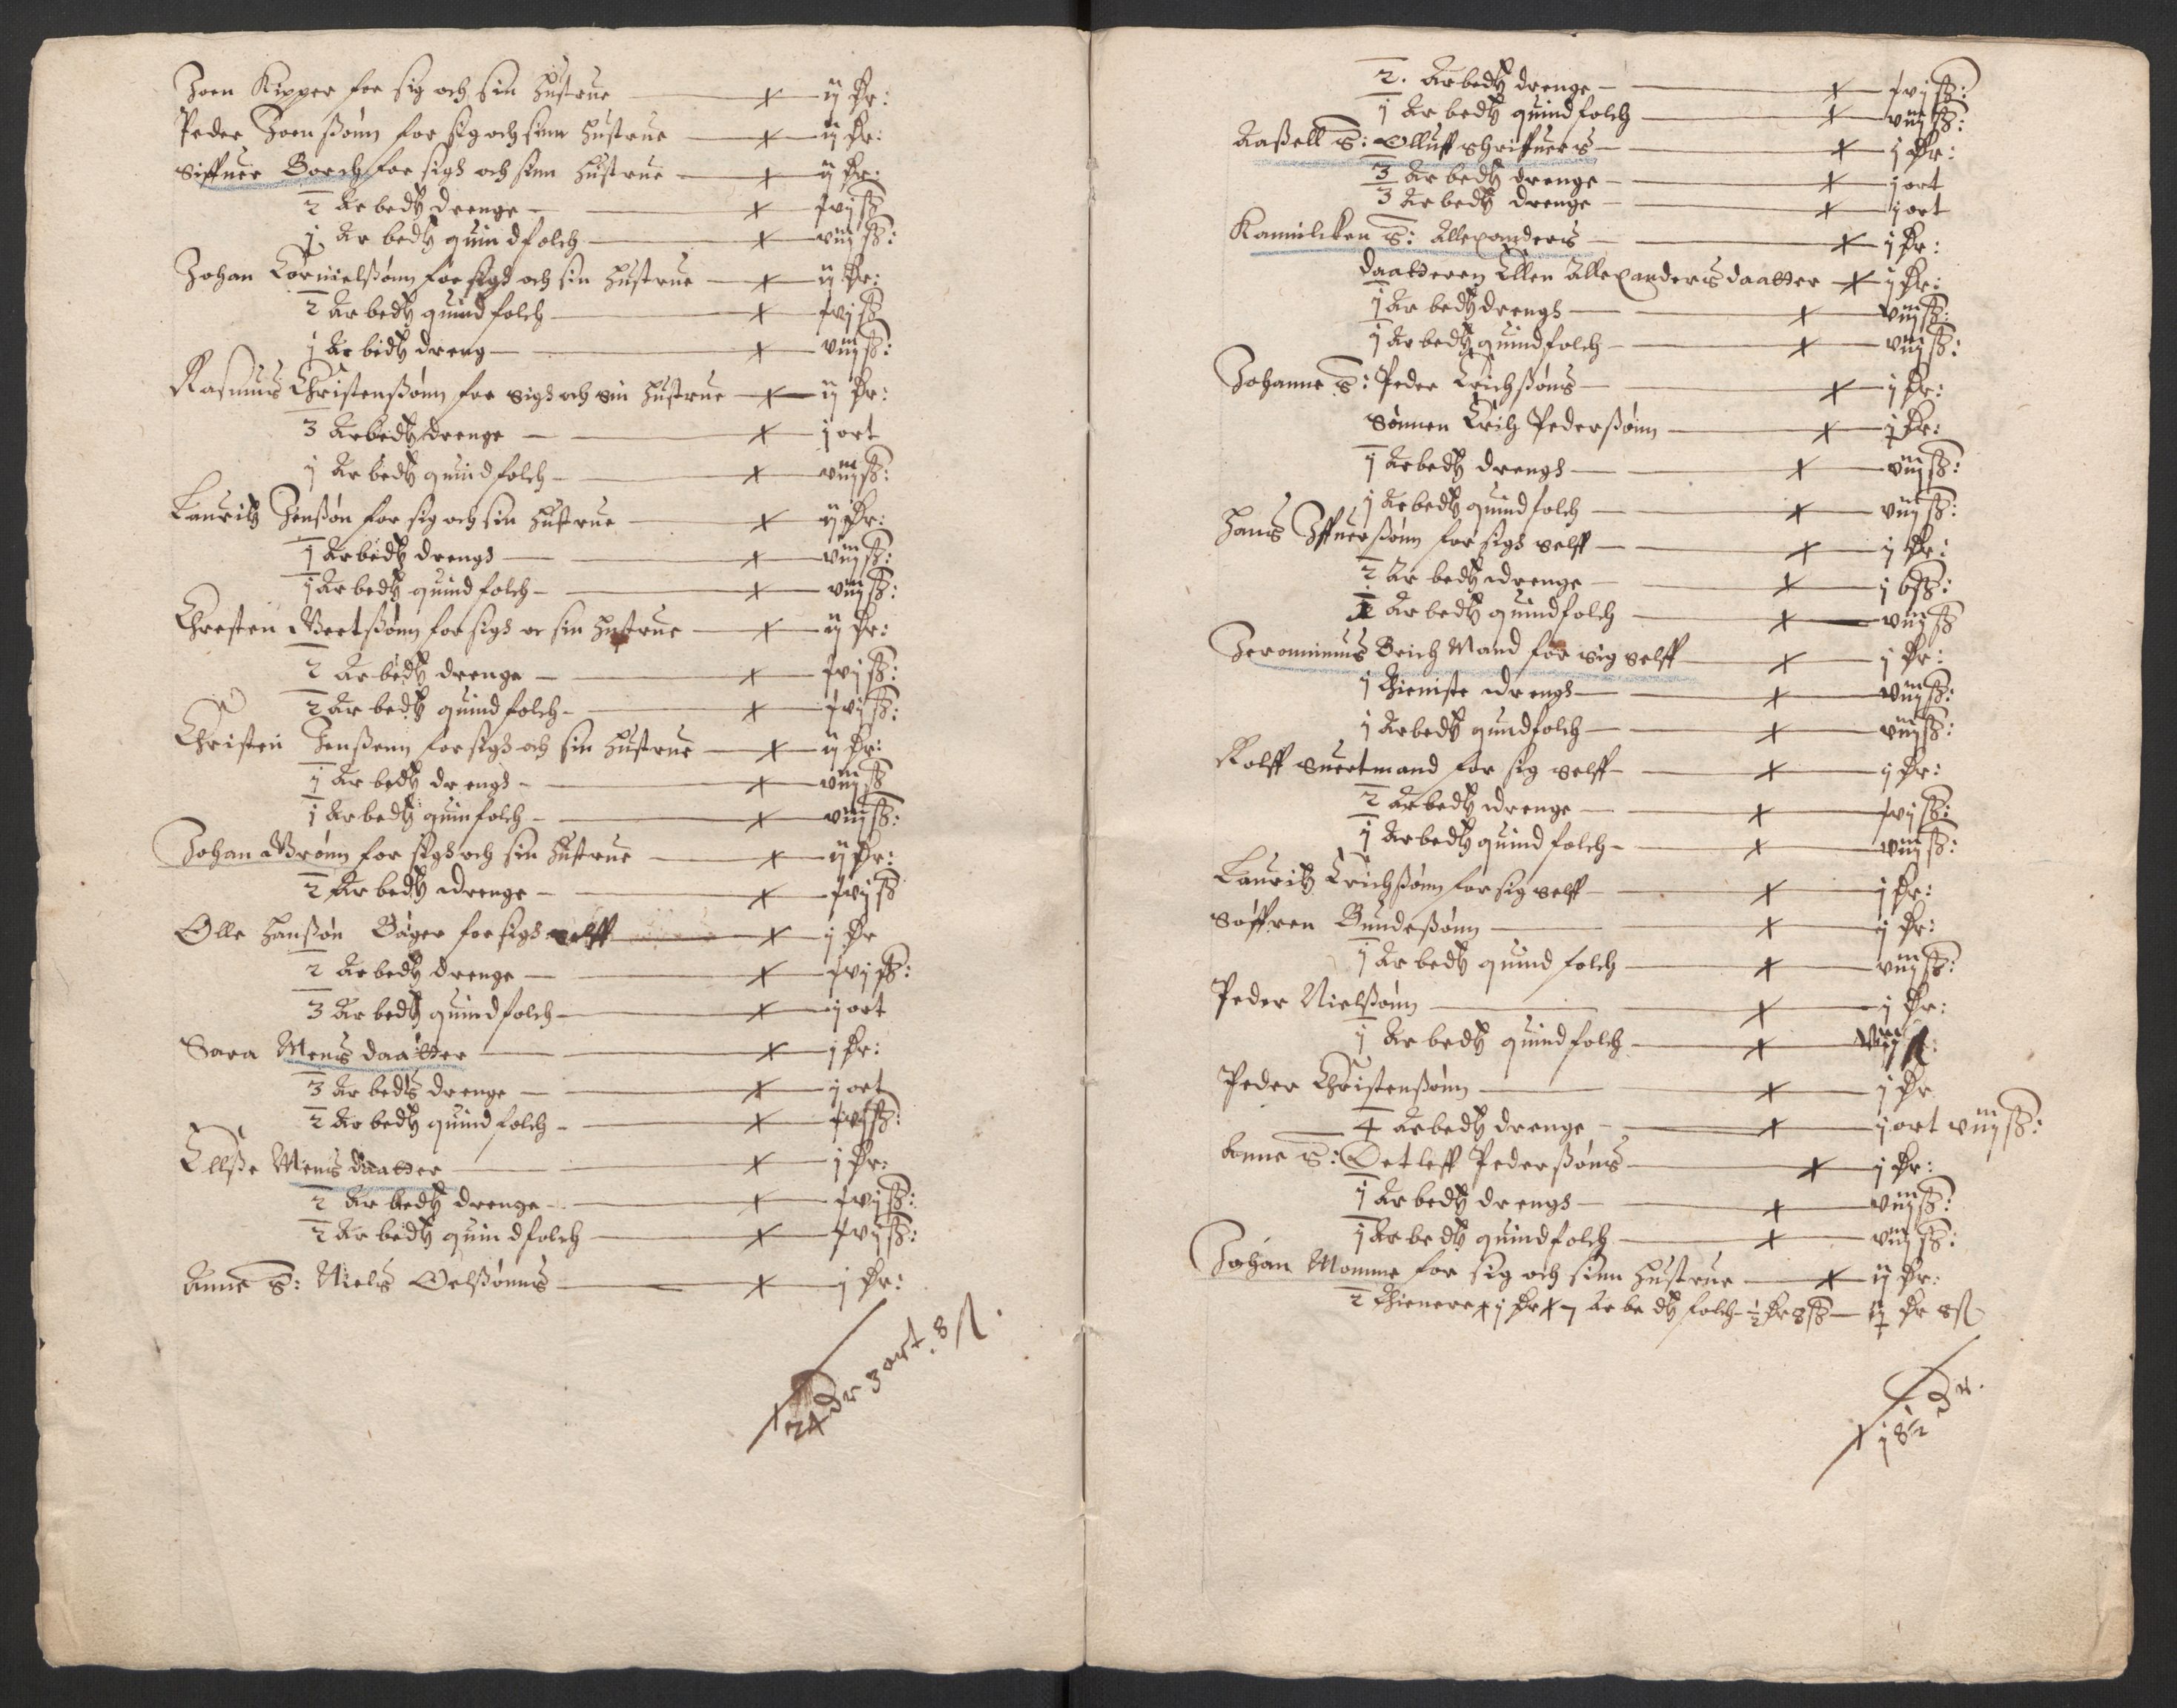 Joen Kipper for sig och sin hustrue — ij Dr:
Peder Joenßønn for sig och sinn hustrue — ij Dr:
Siffuer Borch for sigh och sinn hustrue — ij Dr:
2 Arbedtz drenge — xvj ß
j Arbedtz quindfolch — viij ß:
Johan Cornielßønn for sigh och sin hustrue — ij Dr:
2 Arbedtz quindfolch — xvj ß
j Arbedtz dreng — viij ß:
Rasmus Christenßønn for sigh och sin hustrue — ij Dr:
3 Arbedtz drenge — j ort
j Arbedtz quindfolch — viij ß:
Lauritz Jenßøn for sig och sin hustrue — ij Dr:
j Arbedtz drengh — viij ß:
j Arbedtz quindfolch — viij ß:
Chresten Bertßønn for sigh oc sin hustrue — ij Dr:
2 Arbedtz drenge — xvj ß:
2 Arbedtz quindfolch — xvj ß:
Christen Jenßønn for sigh och sin hustrue — ij Dr:
j Arbedtz drengh — viij ß
j Arbedtz quinfolch — viij ß:
Johan Brønn for sigh och sin hustrue — ij Dr:
2 Arbedtz drenge — xvj ß
Olle Hanßøn Bager for sigh selff — j Dr
2 Arbedtz drenge — xvj ß:
3 Arbedtz quindfolch — j ort
Sara Mens daatter — j Dr:
3 Arbedts drenge — j ort
2 Arbedtz quindfolch — xvj ß:
Ellße Mens daatter — j Dr:
2 Arbedtz drenge — xvj ß:
2 Arbedtz quindfolch — xvj ß:
Anne S: Niels Oelßønns — j Dr:
24 dr 3 ort. 8 ß.
2. Arbedtz drenge — xvj ß:
j Arbedtz quindfolch — viij ß:
Aaßell S: Olluff Schriffuers — j Dr:
3 Arbedtz drenge — j ort
3 Arbedtz drenge — j ort
Kannicken S: Allexanders — j Dr:
daatteren Ellen Allexanders daatter — j Dr:
j Arbedtz drengh — viij ß:
j Arbedtz quindfolch — viij ß:
Johanne S: Peder Erichßøns — j Dr:
Sønnen Erich Pederßønn — j Dr:
j Arbedtz drengh — viij ß:
j Arbedtz quindfolch — viij ß:
Hans Iffuerßønn for sigh selff — j Dr:
2 Arbedtz drenge — j 6 ß:
j Arbedtz quindfolch — viij ß
Jeronimus Brich Mand for sig selff — j Dr:
j thieniste drengh — viij ß:
j Arbedtz qundfolch — viij ß:
Rolff Suertmand for sig selff — j Dr:
2 Arbedtz drenge — xvj ß:
j Arbedtz quindfolch — viij ß:
Lauritz Erichßønn for sig selff — j Dr:
Søffren Bundeßønn — j Dr:
j Arbedtz quindfolch — viij ß:
Peder Nielßønn — j Dr:
j Arbedtz quindfolch — viij ß:
Peder Christenßønn — j Dr
4 Arbedtz drenge — j ort viij ß:
Anne S: Detleff Pederßøns — j Dr:
j Arbedtz drengh — viij ß:
j Arbedtz quindfolch — viij ß:
Johan Momme for sig och sinn hustrue — ij Dr:
2 thienere j Dr 7 Arbedtz folch ½ Dr 8 ß — ij Dr 8 ß
18½ Dr.